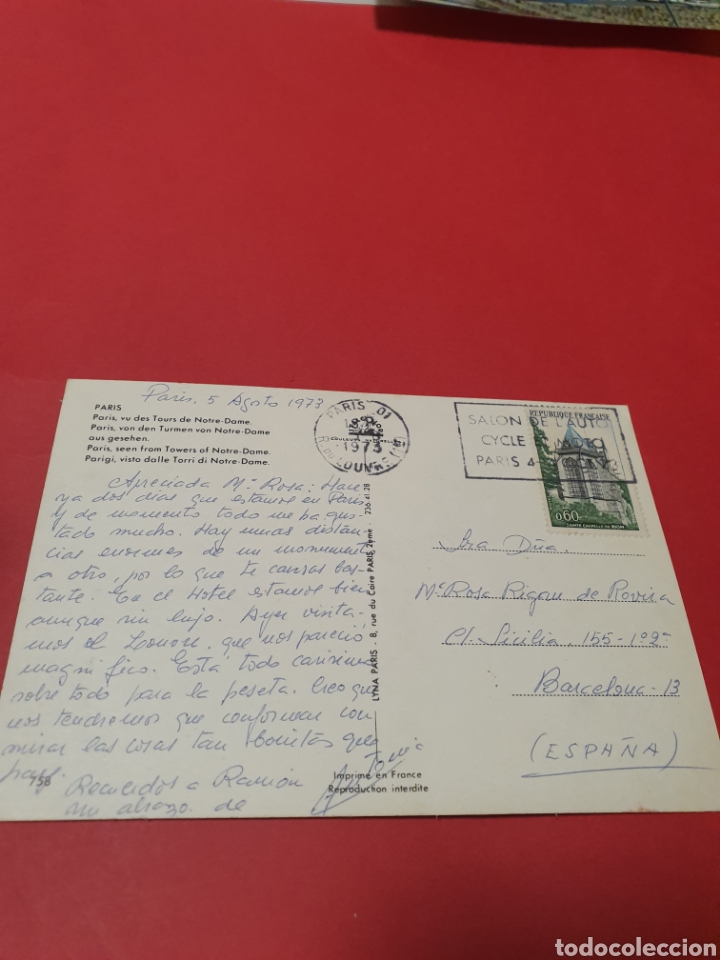 Paris, 5 Agosto 1973
PARIS
Paris, vu des Tours de Notre-Dame.
Paris, von den Turmen von Notre-Dame
aus gesehen.
Paris, seen from Towers of Notre-Dame.
Parigi, visto dalle Torri di Notre-Dame.
Apreciada Mª Rosa: Hace
ya dos dias que estamos en Paris
y de momento todo me ha gus-
tado mucho. Hay unas distan-
cias enormes de un monumento
a otro, por lo que te cansas bas-
tante. En el Hotel estamos bien
aunque sin lujo. Ayer visita-
mos el Louvre, que nos pareció
magnifico. Está todo carisimo
sobre todo para la peseta. Creo que
nos tendremos que conformar con
mirar las cosas tan bonitas que
hay.
Recuerdos a Ramón
un abrazo de
758
LYNA PARIS - 8, rue du Caire PARIS 2ème - 236 41 28
Imprimé en France
Reproduction interdite
PARIS 01
1973
R. DU LOUVRE (1er)
SALON DE L'AUTO
CYCLE MOTO
PARIS 4
REPUBLIQUE FRANÇAISE
0,60
SAINTE CHAPELLE DE RIOM
Sra Dña.
Mª Rosa Rigou de Rovira
Cl. Sicilia, 155-1º2ª
Barcelona-13
(ESPAÑA)
todocoleccion